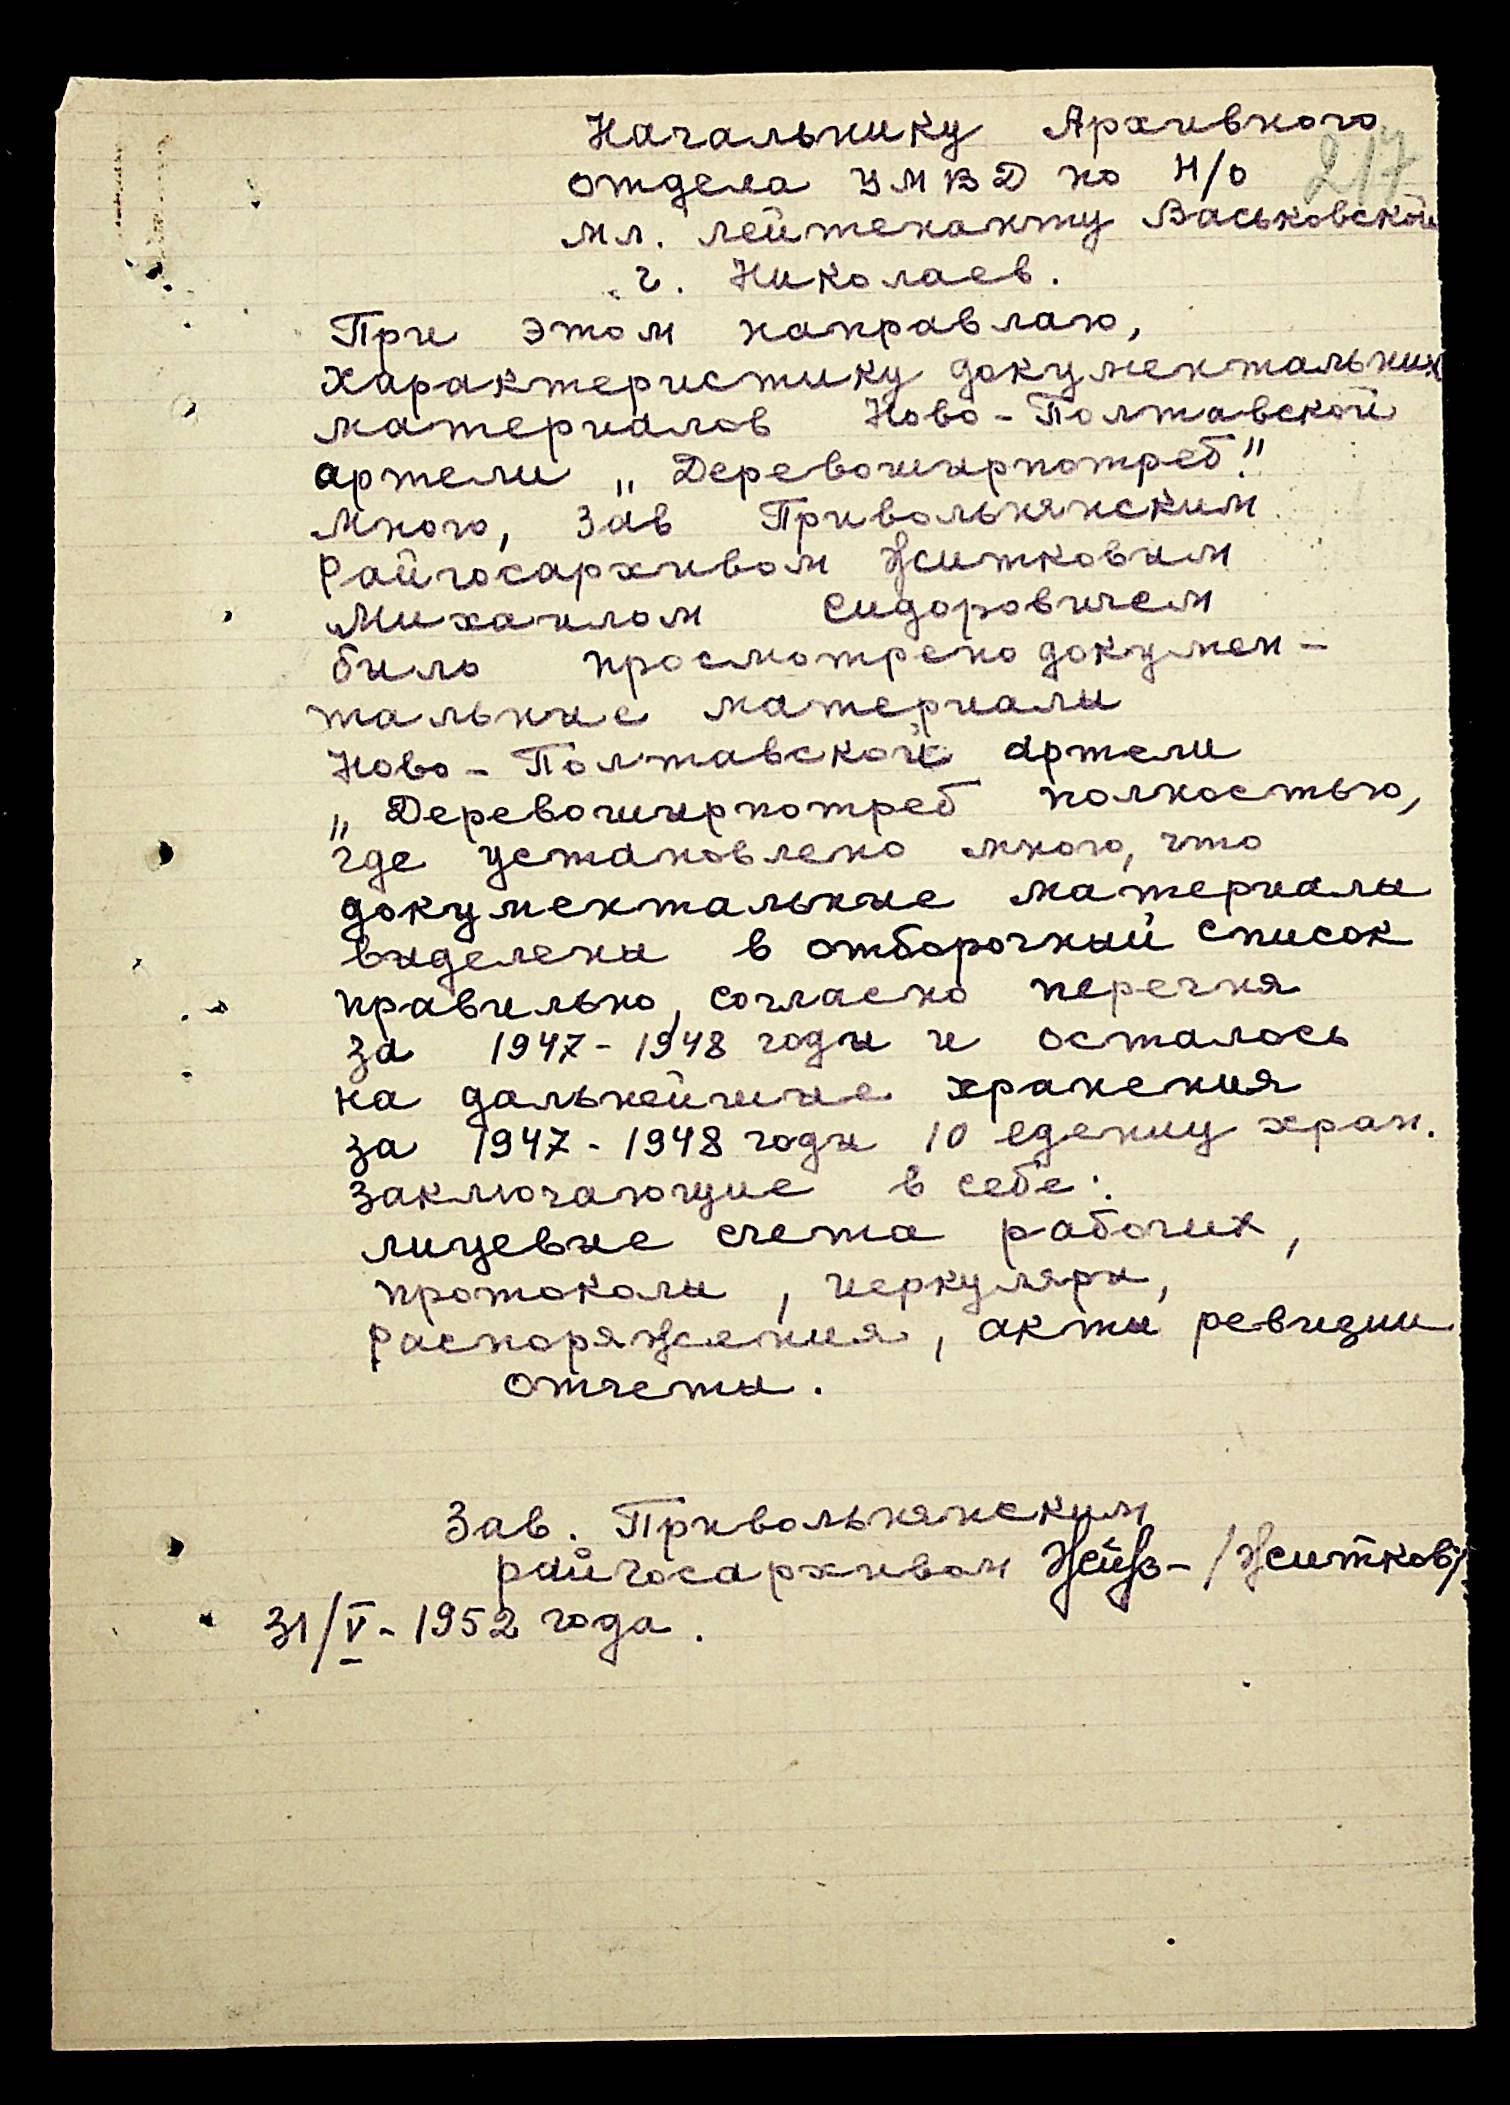 Начальнику Архивного
отдела УМВД по Н/о
217
мл. лейтенанту Васьковской
г. Николаев.
При этом направлаю,
характеристику документальних
материалов Ново-Полтавской
артели „Деревоширпотреб."
мною, Зав Привольнянским
Райгосархивом Житковим
Михаилом Сидоровичем
било просмотрено докумен-
тальние материали
Ново-Полтавской артели
„Деревоширпотреб полностью,
где установлено мною, что
документальние материалы
виделени в отборочный список
правильно, согласно перечня
за 1947-1948 годи и осталось
на дальнейшие хранения
за 1947-1948 годи 10 едениц хран.
Заключающие в себе:
лицевие счета рабочих,
протоколи, церкуляри,
Распоряжения, акти ревизии
Отчети.
Зав. Привольнянским
райгосархивом /Житков/
31/V-1952 года.